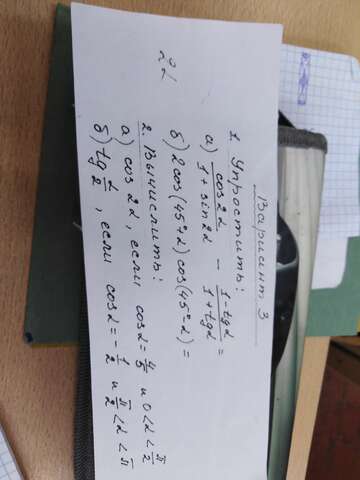 Вариант 3
1. Упростить:
а) cos2α / 1 + sin2α - 1 - tgα / 1 + tgα =
б) 2cos(45°+α) cos(45°-α) =
2. Вычислить:
а) cos 2α, если cosα = 4/5 и 0 < α < π/2
б) tg α/2, если cosα = - 1/2 и π/2 < α < π